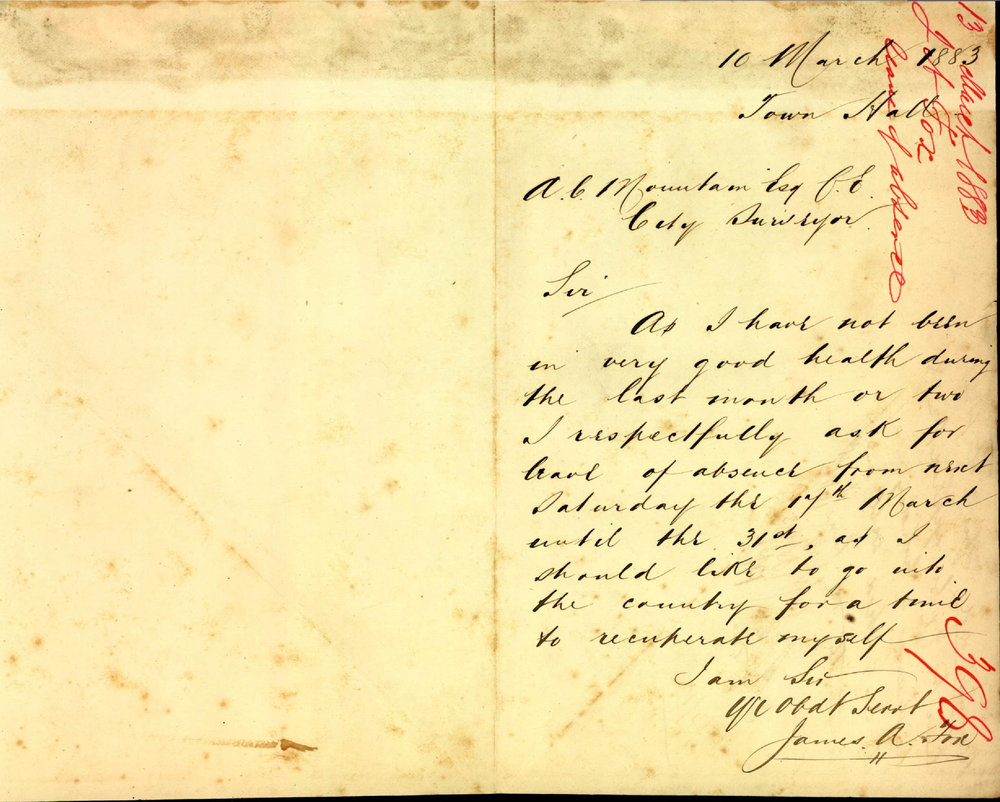 10 March 1883
Town Hall
A. C. Mountain Esq C.E.
City Surveyor
Sir
As I have not been
in very good health during
the last month or two
I respectfully ask for
leave of absence from next
Saturday the 17th March
until the 31st, as I
should like to go into
the country for a time
to recuperate myself
I am Sir
Yr Obdt Servt
James. A. Fox
13 March 1883
Jas Fox
leave of absence
398